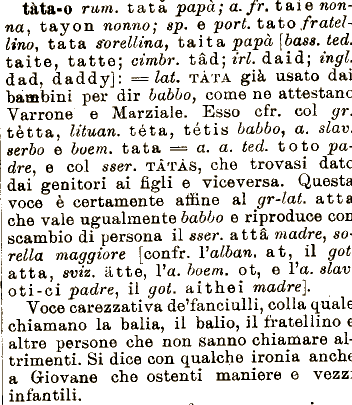 tàta-o rum. tată papà; a. fr. taie non-
na, tayon nonno; sp. e port. tato fratel-
lino, tata sorellina, taita papà [bass. ted.
taite, tatte; cimbr. tâd; irl. daid; ingl.
dad, daddy]: = lat. TÀTA già usato dai
bambini per dir babbo, come ne attestano
Varrone e Marziale. Esso cfr. col gr.
tètta, lituan. téta, tétis babbo, a. slav.
serbo e boem. tata = a. a. ted. toto pa-
dre, e col sser. TÂTÀS, che trovasi dato
dai genitori ai figli e viceversa. Questa
voce è certamente affine al gr-lat. atta
che vale ugualmente babbo e riproduce con
scambio di persona il sser. attâ madre, so-
rella maggiore [confr. l'alban. at, il got
atta, sviz. ätte, l'a. boem. ot, e l'a. slav
oti-ci padre, il got. aithei madre].
Voce carezzativa de'fanciulli, colla quale
chiamano la balia, il balio, il fratellino e
altre persone che non sanno chiamare al-
trimenti. Si dice con qualche ironia anche
a Giovane che ostenti maniere e vezzi
infantili.